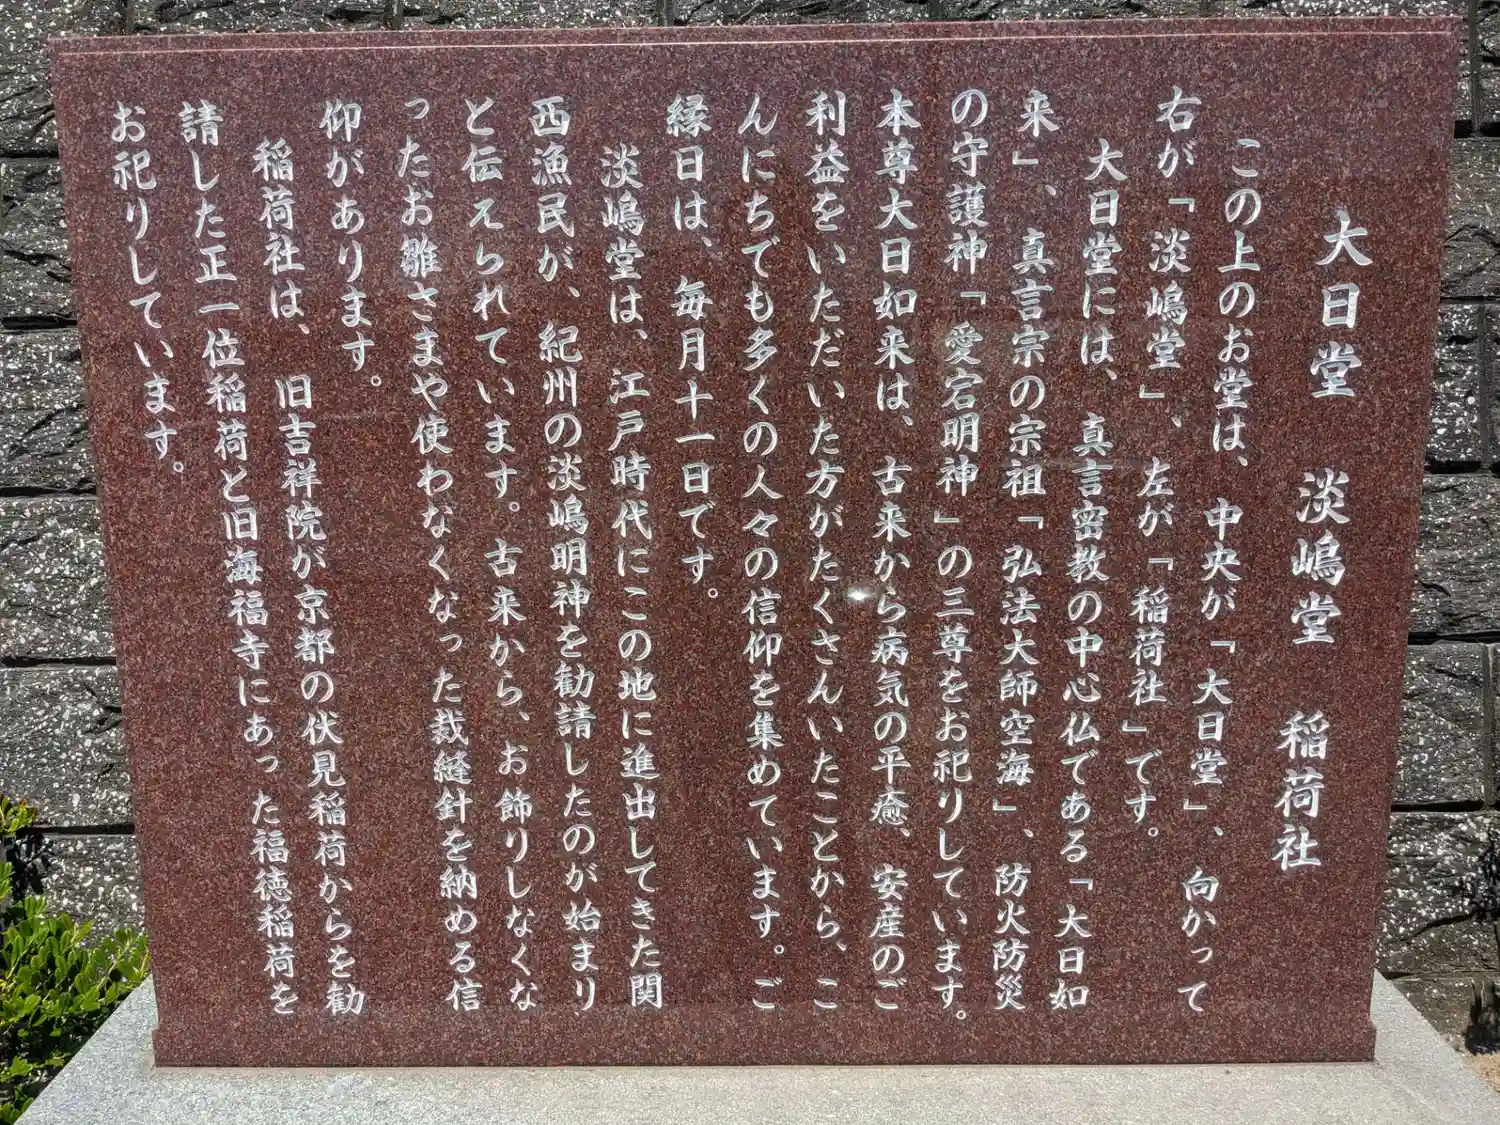 大日堂　淡嶋堂　稲荷社
　この上のお堂は、中央が「大日堂」、向かって
右が「淡嶋堂」、左が「稲荷社」です。
　大日堂には、真言密教の中心仏である「大日如
来」、真言宗の宗祖「弘法大師空海」、防火防災
の守護神「愛宕明神」の三尊をお祀りしています。
本尊大日如来は、古来から病気の平癒、安産のご
利益をいただいた方がたくさんいたことから、こ
んにちでも多くの人々の信仰を集めています。ご
縁日は、毎月十一日です。
　淡嶋堂は、江戸時代にこの地に進出してきた関
西漁民が、紀州の淡嶋明神を勧請したのが始まり
と伝えられています。古来から、お飾りしなくな
ったお雛さまや使わなくなった裁縫針を納める信
仰があります。
　稲荷社は、旧吉祥院が京都の伏見稲荷からを勧
請した正一位稲荷と旧海福寺にあった福徳稲荷を
お祀りしています。